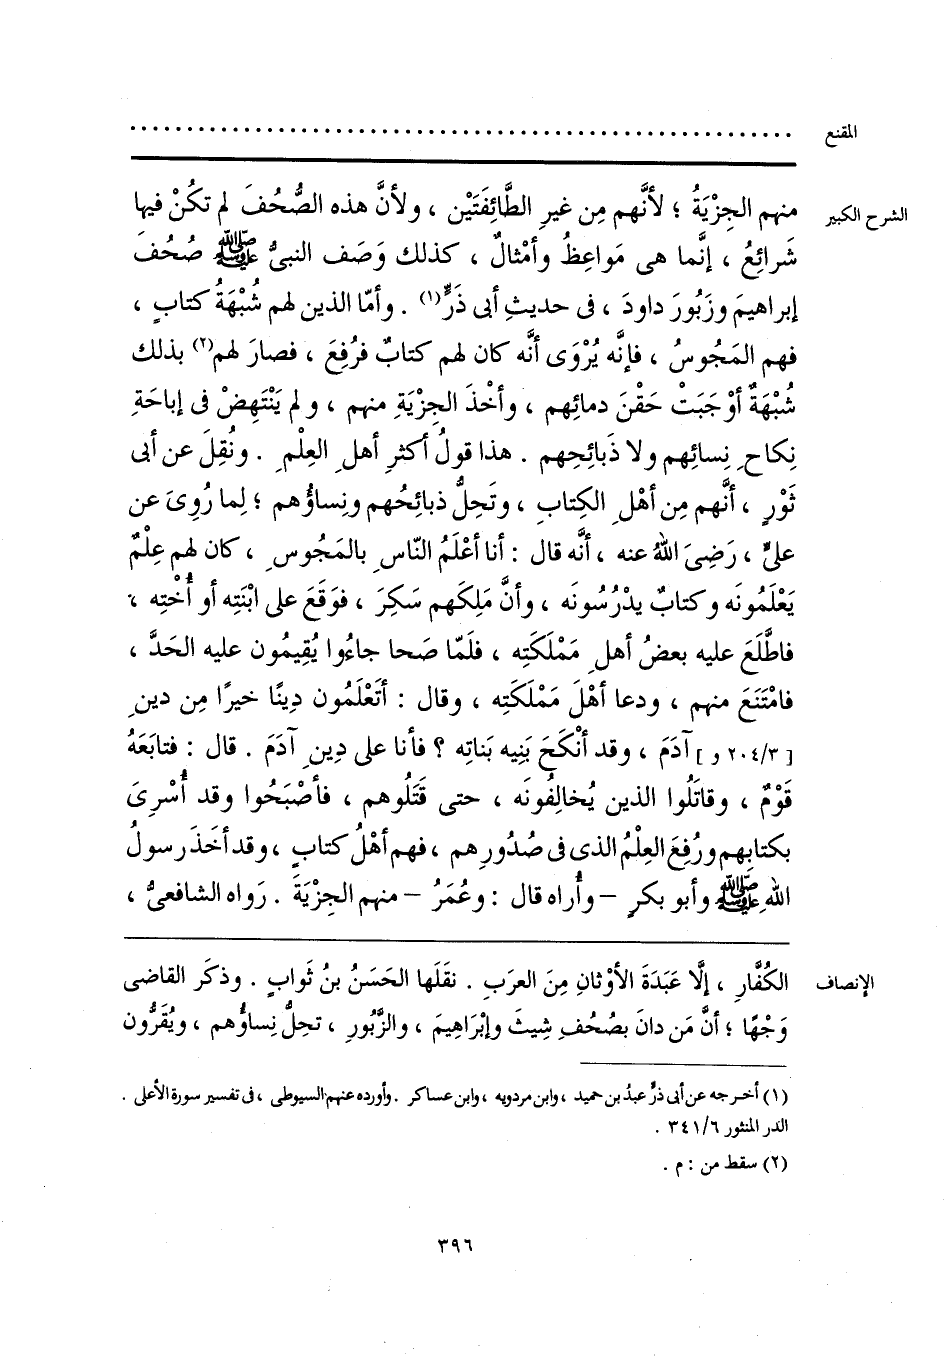 المقنع ............................................................
الشرح الكبير منهم الجِزْيَةُ ؛ لأنَّهم مِن غيرِ الطَّائِفَتَيْن ، ولأنَّ هذه الصُّحُفَ لم تكُنْ فيها
شَرائِعُ ، إنَّما هى مَواعِظُ وأمْثالٌ ، كذلك وَصَف النبىُّ ﷺ صُحُفَ
إبراهيمَ وزَبُورَ داودَ ، فى حديثِ أبى ذَرٍّ(١) . وأمّا الذين لهم شُبْهَةُ كتابٍ ،
فهم المَجُوسُ ، فإنَّه يُرْوَى أنَّه كان لهم كتابٌ فرُفِعَ ، فصارَ لهم(٢) بذلك
شُبْهَةٌ أوْجَبَتْ حَقْنَ دمائِهم ، وأخْذَ الجِزْيَةِ منهم ، ولم يَنْتَهِضْ فى إباحَةِ
نِكاحِ نِسائِهم ولا ذَبائِحِهم . هذا قولُ أكثرِ أهلِ العِلْمِ . ونُقِلَ عن أبى
ثَوْرٍ ، أنَّهم مِن أهْلِ الكِتابِ ، وتَحِلُّ ذبائحُهم ونِساؤُهم ؛ لِما رُوِىَ عن
علىٍّ ، رَضِىَ اللهُ عنه ، أنَّه قال : أنا أعْلَمُ النّاسِ بالمَجُوسِ ، كان لهم عِلْمٌ
يَعْلَمُونَه وكتابٌ يدْرُسُونَه ، وأنَّ مَلِكَهم سَكِرَ ، فوَقَعَ على ابْنَتِه أو أُخْتِه ،
فاطَّلَعَ عليه بعضُ أهلِ مَمْلَكَتِه ، فلَمّا صَحا جاءُوا يُقِيمُون عليه الحَدَّ ،
فامْتَنَعَ منهم ، ودعا أهْلَ مَمْلَكَتِه ، وقال : أتَعْلَمُون دِينًا خيرًا مِن دينِ
[ ٢٠٤/٣ و ] آدَمَ ، وقد أنْكَحَ بَنِيه بَناتِه ؟ فأنا على دِينِ آدَمَ . قال : فتابَعَهُ
قَوْمٌ ، وقاتَلُوا الذين يُخالِفُونَه ، حتى قَتَلُوهم ، فأصْبَحُوا وقد أُسْرِىَ
بكتابِهم ورُفِعَ العِلْمُ الذى فى صُدُورِهم ، فهم أهْلُ كتابٍ ، وقد أخَذَ رسولُ
اللهِ ﷺ وأبو بكرٍ – وأُراه قال : وعُمَرُ – منهم الجِزْيَةَ . رَواه الشافعىُّ ،
الإنصاف الكُفَّارِ ، إلَّا عَبَدَةَ الأوْثانِ مِنَ العرَبِ . نقَلَها الحَسَنُ بنُ ثَوابٍ . وذكَر القاضى
وَجْهًا ؛ أنَّ مَن دانَ بصُحُفِ شِيثَ وإبْرَاهِيمَ ، والزَّبُورِ ، تحِلُّ نِساؤُهم ، ويُقَرُّون
(١) أخرجه عن أبى ذرٍّ عبدُ بن حميد ، وابن مردويه ، وابن عساكر . وأورده عنهم السيوطى ، فى تفسير سورة الأعلى .
الدر المنثور ٣٤١/٦ .
(٢) سقط من : م .
٣٩٦